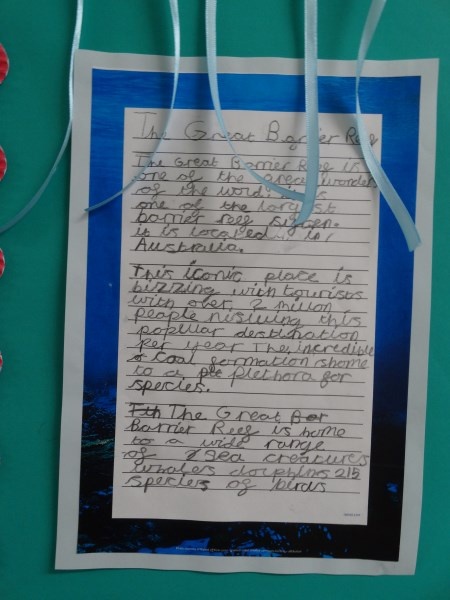 The Great Barrier Reef
The Great Barrier Reef is
one of the great wonders
of the word. it is
one of the largest
barrier reef
it is located in
Australia.
This iconic place is
bizzing with tourists
with over 2 million
people this
popular destination
per year The incredible
coal formation shome
to a plethora for
species.
The Great
Barrier Reef is home
to a wide range
of sea creatures
whales dolphins 215
species of birds